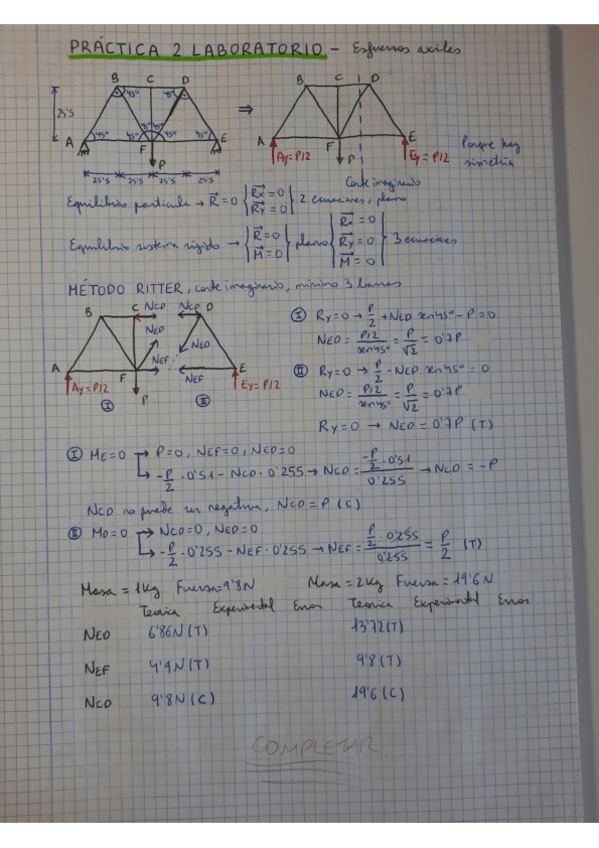 PRÁCTICA 2 LABORATORIO - Esfuerzos axiles
B C D B C D
25'5 45° 45° ⇒
45° 45° 45° 45° 45° 45°
A F E A F E
P Ay=P/2 P Ey=P/2 Porque hay
simetría
25'5 25'5 25'5 25'5 Corte imaginario
Equilibrio partícula → R=0 { Rx=0 Ry=0 } 2 ecuaciones, plano
Equilibrio sistema rígido → { R=0 M=0 } plano { Rx=0 Ry=0 M=0 } 3 ecuaciones
MÉTODO RITTER, corte imaginario, mínimo 3 barras
B C NCD NCD D
NED NED
A F NEF NEF E
Ay=P/2 P Ey=P/2
I II
I Ry=0 → P/2 + NED sen45° - P = 0
NED = (P/2)/sen45° = P/√2 = 0'7P
II Ry=0 → P/2 - NED sen45° = 0
NED = (P/2)/sen45° = P/√2 = 0'7P
Ry=0 → NED = 0'7P (T)
I ME=0 → P=0, NEF=0, NED=0
→ -P/2 · 0'51 - NCD · 0'255 → NCD = (-P/2 · 0'51)/0'255 → NCD = -P
NCD no puede ser negativa, NCD = P (C)
II MD=0 → NCD=0, NED=0
→ -P/2 · 0'255 - NEF · 0'255 → NEF = (P/2 · 0'255)/0'255 = P/2 (T)
Masa = 1Kg Fuerza=9'8N Masa = 2Kg Fuerza = 19'6N
Teórica Experimental Error Teórica Experimental Error
NED 6'86N (T) 13'72(T)
NEF 4'9N (T) 9'8 (T)
NCD 9'8N (C) 19'6 (C)
COMPLETAR